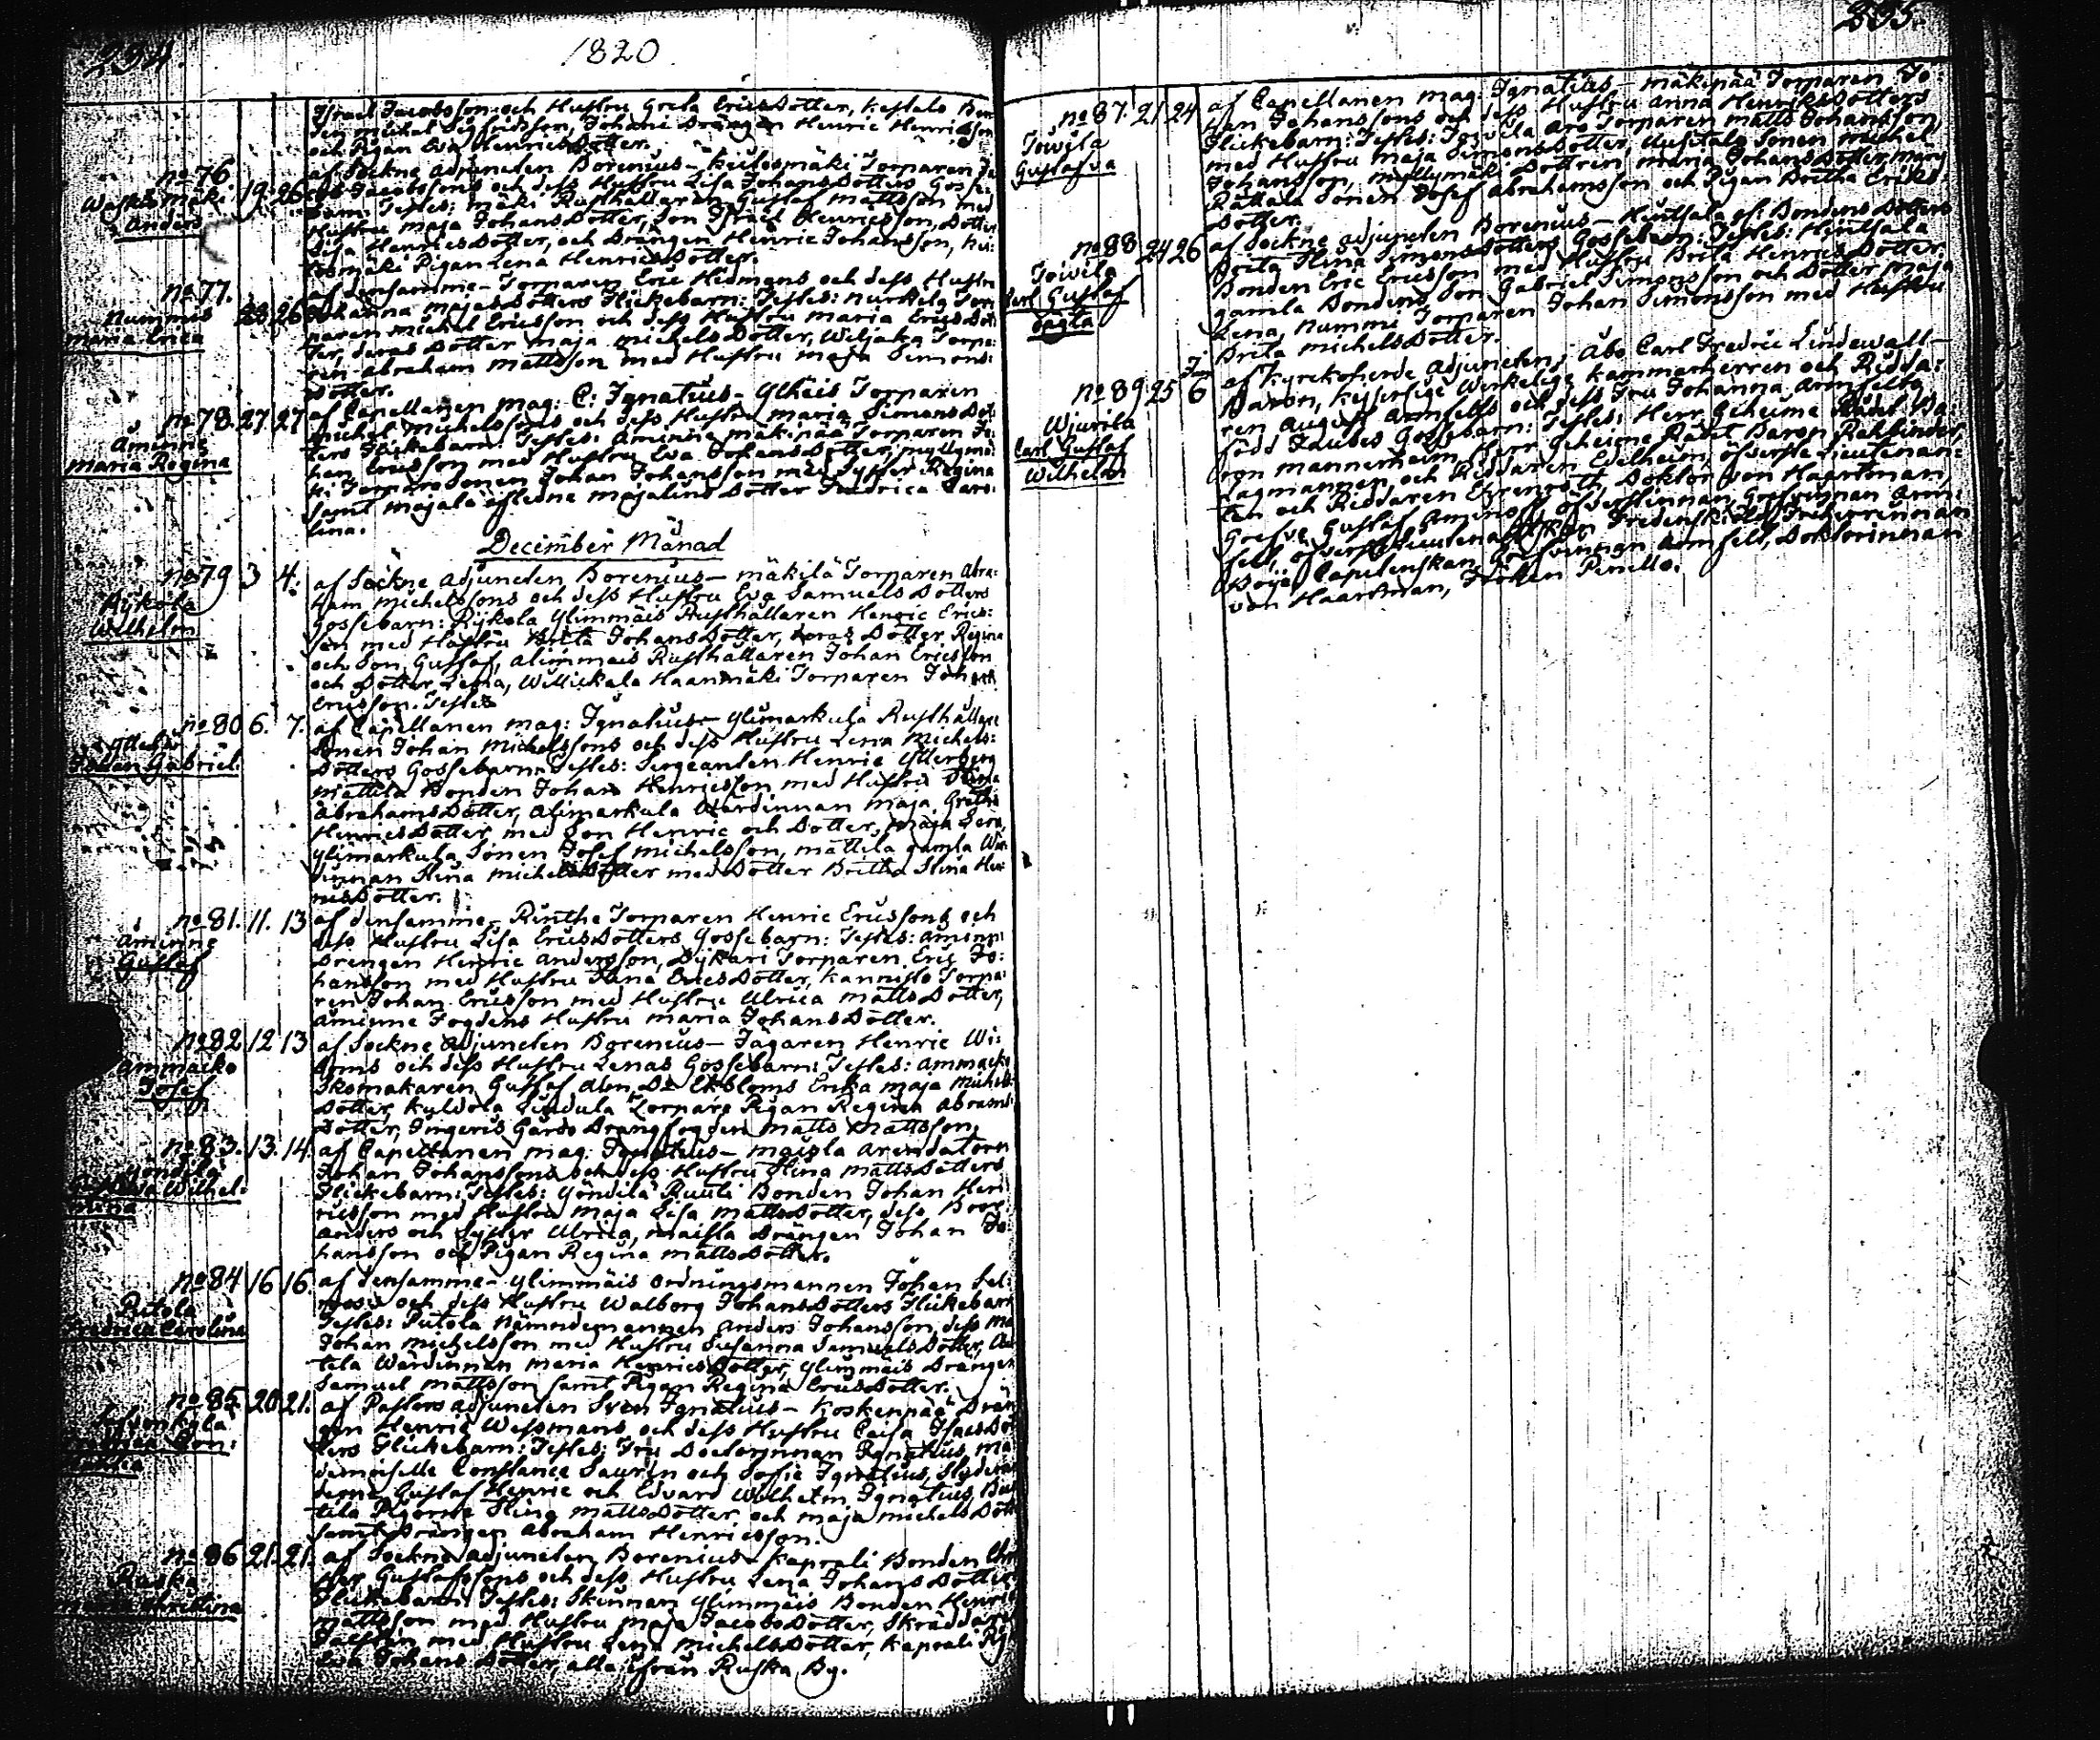 234.
1820
Israel Jacobsson och Hustru Greta EricsDotter, Kestalo Bon
den Michel Sigfridsson, Johani Drängen Henric Henricsson
och Pigan Eva HenricsDotter.
no 76
Anders
19 26
af Sockne Adjuncten Borenius - Keilosmäki Torparen Ja
cob Jacobssons och dess Hustru Lisa JohansDotters Gosse
barn: Testes: Mäki Rusthållaren Gustaf Mattsson med
Hustru Maja JohansDotter, Son Israel Henricsson, Dotter
Lisa HenricsDotter, och Drängen Henric Johansson, Kei
losmäki Pigan Lena HenricsDotter.
no 77.
Nummis
Maria Erica
23 26
af densamme - Torparen Eric Hedmans och dess Hustru
Johanna MajasDotters Flickebarn: Testes: Nurkela Tor
paren Michel Ericsson och dess Hustru Maria EricsDot
ter, deras Dotter Maja MichelsDotter, Wiljaka Torpa:
ren Abraham Mattsson med Hustru Maja Simons:
Dotter.
no 78. 27 27
Åminne
Maria Regina
af Capellanen Mag: C: Ignatius - Ylheis Torparen
Michel Michelssons och dess Hustru Maria SimonsDot
ters Flickebarn: Testes: Åminne Mäkipää Torparen Jo:
han Ericsson med Hustru Eva JohansDotter, Myllymä:
ki TorpareSonen Johan Johansson med Syster Regina
samt Majala afledne Majalins Dotter Fredrica Caro:
lina.
December Månad
no 79 3 4.
Rykola
Wilhelm
af Sockne Adjuncten Borenius - Mäkilä Torparen Abra:
ham Michelssons och dess Hustru Eva SamuelsDotters
Gossebarn: Rykola Ylimmäis Rusthållaren Henric Erics:
son med Hustru Brita JohansDotter, deras Dotter Regina
och Son Gustaf, Alimmais Rusthållaren Johan Ericsson
och Dotter Lena, Willickala Haanmäki Torparen Johan
Ericsson. Testes
no 80 6. 7.
Johan Gabriel.
af Capellanen Mag: Ignatius - Ylimarkula Rusthållare
Sonen Johan Michelssons och dess Hustru Lena Michels:
Dotters Gossebarn: Testes: Sergeanten Henric Ytterberg
Mattila Bonden Johan Henricsson med Hustru Stina
AbrahamsDotter, Alimarkula Wärdinnan Maja Greta
HenricsDotter med Son Henric och Dotter, Maja Lena,
Ylimarkula Sonen Josef Michelsson, Mattila gamla Wär
dinnan Stina MichelsDotter med Dotter Brita Stina Hen
ricsDotter.
no 81. 11. 13
Åminne
Gustaf
af densamme - Rinthe Torparen Henric Ericssons och
dess Hustru Lisa EricsDotters Gossebarn: Testes: Åminne
Drengen Henric Andersson, Dykari Torparen Eric Jo:
hansson med Hustru Stina EricsDotter, Kannisto Torpa:
ren Johan Ericsson med Hustru Ulrica MattsDotter,
Åminne Fogdens Hustru Maria JohansDotter.
no 82 12 13
Ammacko
Josef
af Sockne Adjuncten Borenius - Jägaren Henric Wi:
boms och dess Hustru Lenas Gossebarn: Testes: Ammacko
Skomakaren Gustaf Alen Do Ekbloms Enka Maja Michels
Dotter, Kuldola Lindula Torpare Pigan Regina Abrams:
Dotter, Tingeris Gårds Drängfogden Matts Mattsson,
no 83. 13. 14.
Yöndilä
Wilhel:
mina
af Capellanen Mag: Ignatius - Maisla Arendatorn
Johan Johanssons och dess Hustru Stina MattsDotters
Flickebarn: Testes: Yöndilä Ruuti Bonden Johan Hen
ricsson med Hustru Maja Lisa MattsDotter, dess Bror
Anders och Syster Ulrica, Maisla Drängen Johan Jo
hansson och Pigan Regina MattsDotter.
no 84 16 16.
Putola
Fredrica Carolina
af densamme - Ylimmäis Ordningsmannen Johan Sel:
roos och dess Hustru Walborg JohansDotters Flickebarn
Testes: Putola Nämndemannen Anders Johansson, dess Måg
Johan Michelsson med Hustru Susanna SamuelsDotter,
tila Wärdinnan Maria HenricsDotter, Ylimmäis Drängen
Samuel Mattsson samt Pigan Regina EricsDotter.
no 85 20 21.
af Pastors Adjuncten Sven Ignatius - Koskenpää Drän
gen Henric Wessmans och dess Hustru Caisa IsacsDot
ters Flickebarn: Testes: Fru Doctorinnan Ignatius, Ma
demoiselle Constance Saurén och Sofie Ignatius, Studeran
derne Gustaf Henric och Edvard Wilhelm Ignatius,
tila Pigorne Stina MattsDotter och Maja MichelsDott
samt Drängen Abraham Henricsson.
no 86 21. 21.
Ruska
Christina
af Sockne Adjuncten Borenius - Kaprali Bonden Chri
ster Gustafssons och dess Hustru Lena JohansDotter
Flickebarn: Testes: Skinnari Ylimmäis Bonden Henric
Mattsson med Hustru Maja JacobsDotter, Skräddaren
med Hustru Lena MichelsDotter, Kaprali Pig
Eva Johans Dotter, alla ifrån Ruska By.
235.
no 87. 21 24
Toivila
Gustafva
af Capellanen Mag: Ignatius Mäkipää Torparen Jo
han Johanssons och dess Hustru Anna HenricsDotters
Flickebarn: Testes: Toivila Aro Torparen Matts Johansson,
med Hustru Maja SimonsDotter, Uusitalo Sonen Michel
Johansson, Myllymäki Dottren Maria JohansDotter, Mary
Rättala Sonen Josef Abrahamsson och Pigan Britha Erics
Dotter.
no 88 24 26
Toivila
Carl Gustaf
oägta
af Sockne Adjuncten Borenius - Huntsala gl: Bondens Dotters
Brita Stina SimonsDotters Gossebarn: Testes: Huntsala
Bonden Eric Ericsson med Hustru Brita HenricsDotter
gamla Bondens Son Gabriel Simonsson och Dotter Maja
Lena, Nummi Torparen Johan Simonsson med Hustru
Brita MichelsDotter.
no 89 25 6
Wjurila
Carl Gustaf
Wilhelm
af Kyrkoherde Adjuncten i Åbo Carl Fredric Lindewall -
Baron, Kejserlige Werkelige Kammarherren och Ridda:
ren August Armfelts och dess Fru Johanna Armfelts
född Taubes Gossebarn: Testes: Herr Geheime Rådet Ba:
ron Mannerheim, Herr Geheime Rådet Baron Rehbinder,
Lagmannen och Riddaren Edelheim, Öfverste Lieutenan:
ten och Riddaren Ehrenroth, Doktor von Haartman,
Grefve Gustaf Aminoff, Öfverstinnan Grefvinnan Arm:
felt, Öfverste Lieutenantskan Fredenskiöld, Friherrinnan
Boije, Capitenskan Grefvinnan Armfelt, Doktorinnan
von Haartman, Fröken Pinello.